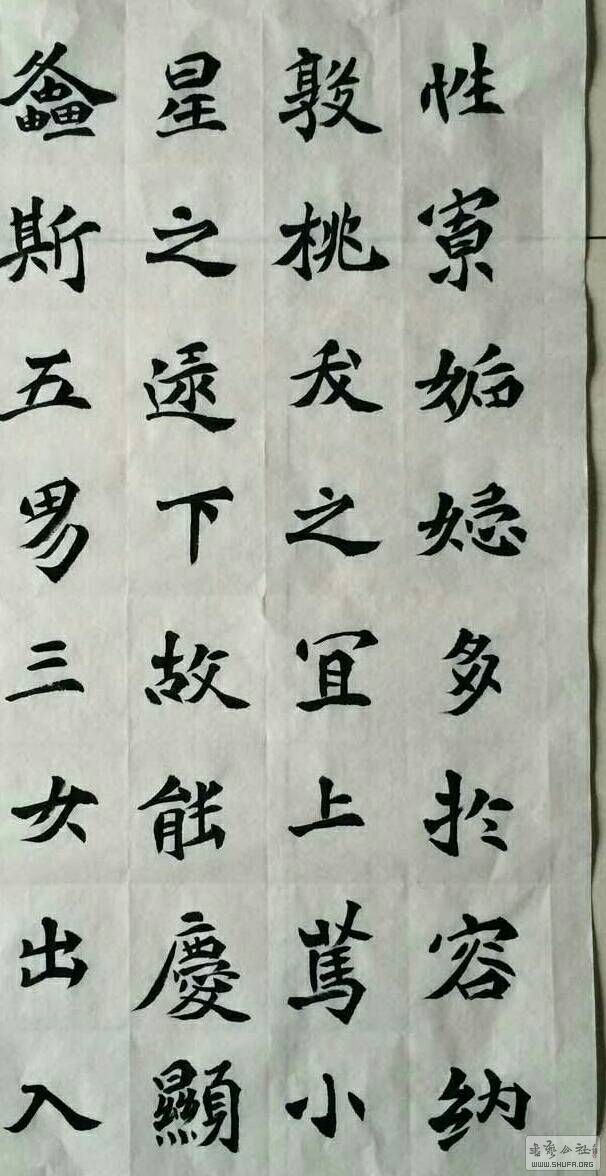 性寡妬多於容納
敦桃夭之宜上篤小
星之逮下故能慶顯
螽斯五男三女出入
書藝公社
WWW.SHUFA.ORG